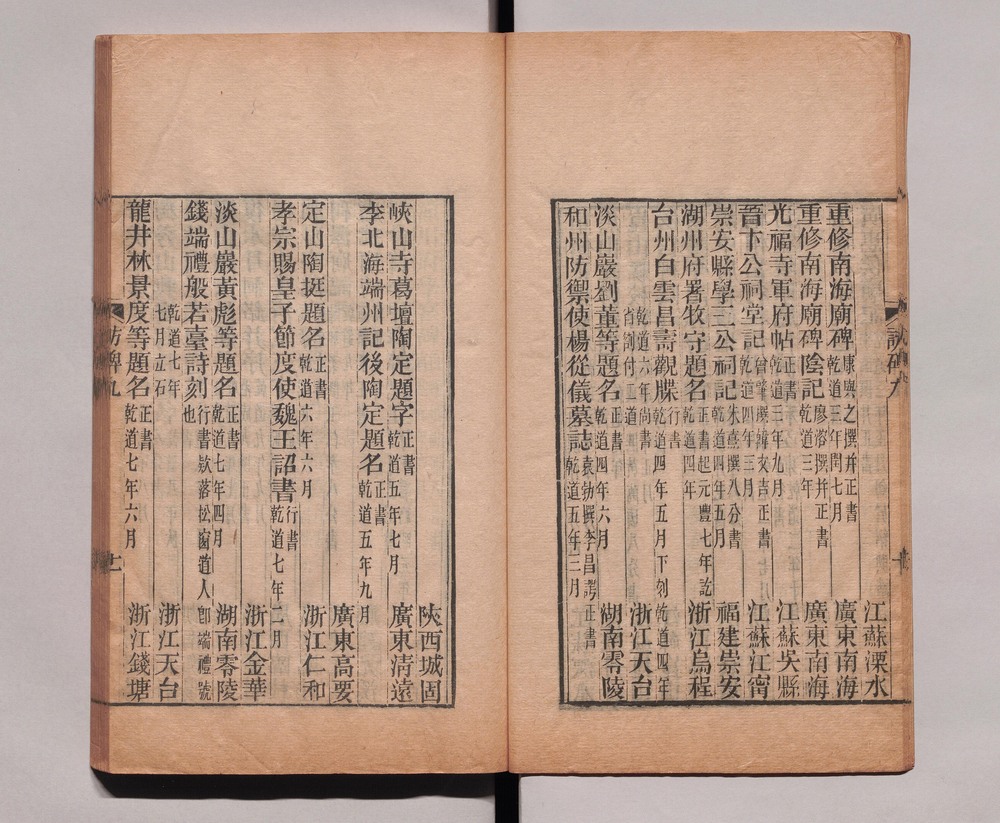 江蘇溧水
重修南海廟碑 康與之撰并正書 乾道三年閏七月 廣東南海
重修南海廟碑陰記 廖容撰并正書 乾道三年 廣東南海
光福寺軍府帖 正書 乾道三年九月 江蘇吳縣
晉卞公祠堂記 曾肇撰韓友吉正書 乾道四年三月 江蘇江甯
崇安縣學三公祠記 朱熹撰八分書 乾道四年五月 福建崇安
湖州府署牧守題名 正書起元豐七年訖 乾道四年 浙江烏程
台州白雲昌壽觀牒 行書 乾道四年五月下刻乾道四年
乾道六年尚書 省劄付二道 浙江天台
淡山巖劉董等題名 正書 乾道四年六月 湖南零陵
和州防禦使楊從儀墓誌 袁勃撰李昌諤正書 乾道五年三月
陝西城固
峽山寺葛壇陶定題字 正書 乾道五年七月 廣東清遠
李北海端州記後陶定題名 正書 乾道五年九月
廣東高要
定山陶挺題名 正書 乾道六年六月 浙江仁和
孝宗賜皇子節度使魏王詔書 行書 乾道七年二月
浙江金華
淡山巖黃彪等題名 正書 乾道七年四月 湖南零陵
錢端禮般若臺詩刻 行書款落松窗道人卽端禮號 也
乾道七年 七月立石 浙江天台
龍井林景度等題名 正書 乾道七年六月 浙江錢塘
訪碑九
十一